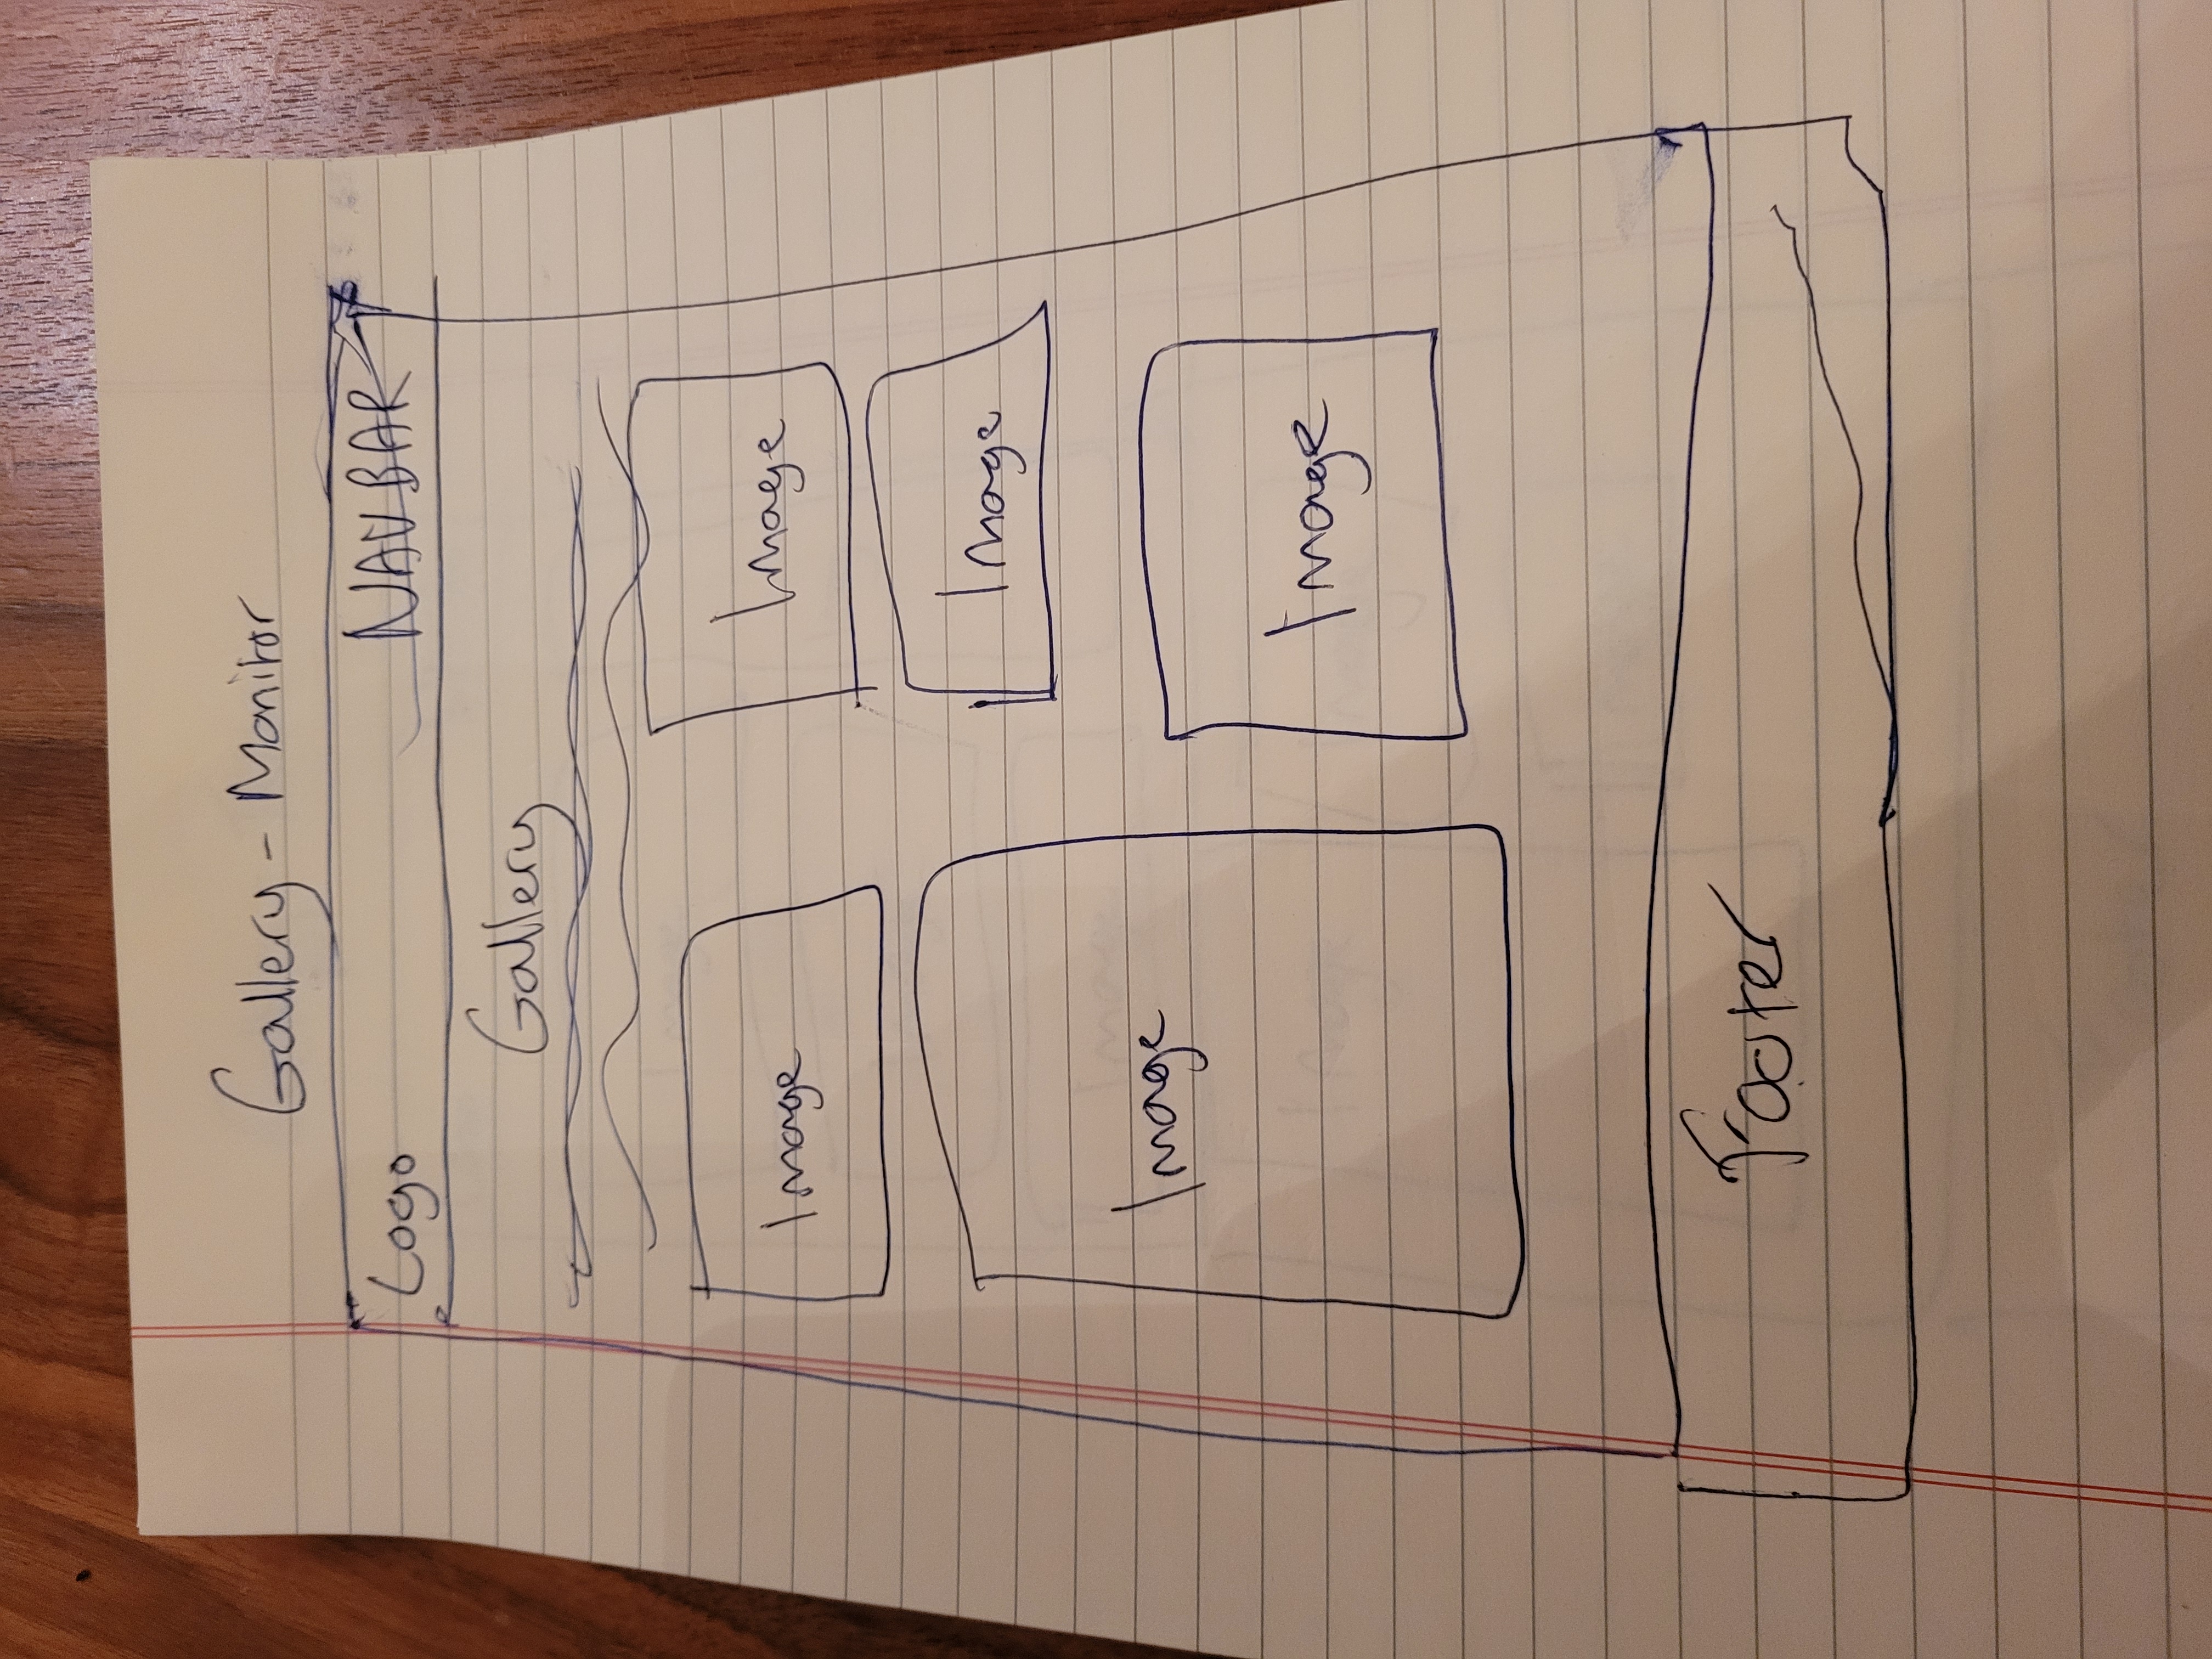 Gallery - Monitor
Logo NAVBAR
Gallery
Image Image
Image
Image
Image
Footer